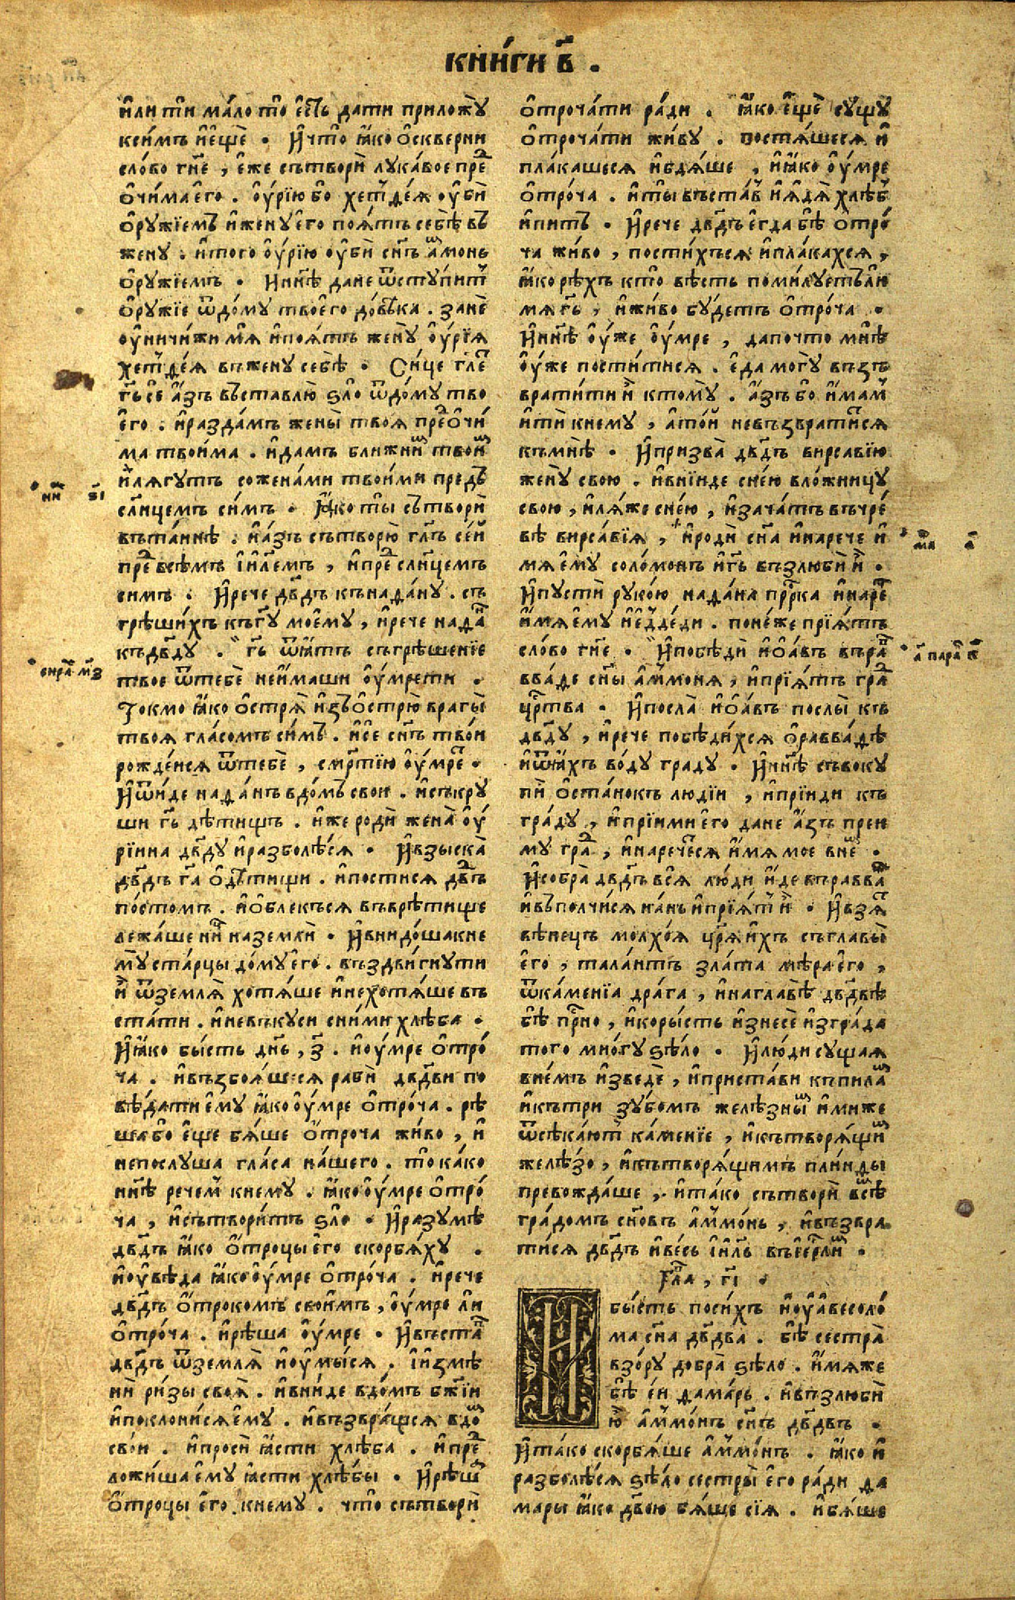 кни́ги в҃ .
и҆ли ти ма́ло то є҆сть дати приложу̀
ксимъ и҆є҆щѐ . И҆что̀ ꙗ҆ко ѡ҆скверни
сло́во гн҃е , є҆́же сътворѝ лука́вое прⷣе
о҆чи́ма є҆го . оу҆рі́ю бо хетⷮде́ѧ оу҆бѝ
о҆рꙋ́жїемъ и҆женꙋ є҆го поѧ́тъ себѣ̀ въ
женꙋ̀ . и҆того оу҆рі́ю оу҆бѝ сн҃ъ а҆монь
о҆рꙋ́жїемъ . Нн҃ѣ дане ѿстꙋпитⷮ
о҆рꙋ́жїе ѿдо́мꙋ твоє҆го до́вѣка . занѐ
оу҆ничижи мѧ̀ и҆поѧ́тъ женꙋ̀ оу҆рі́ѧ
хетⷮде́ѧ въженꙋ себѣ̀ . Си́це гл҃е
гь҃ се а҆́зъ въставлю̀ ѕло ѿдо́мꙋ тво
є҆го . и҆разда́мъ жены̀ твоѧ̀ прⷣео҆чи́
ма твои́ма . и҆дамъ бли́жниⷨ твои́ⷨ
и҆лѧ́гꙋтъ соженами твои́ми предъ
сл҃нцемъ си́мъ . Ꙗ҆ко ты̀ сътворѝ
вътаинѣ . и҆а҆́зъ сътворю̀ гл҃ъ се́й
прⷣе всѣ́мъ і҆и҃лемъ , и҆прⷣе сл҃нцемъ
симъ . И҆рече дв҃дъ кънаѳа́нꙋ . съ
грѣши́хъ къгⷭ҇ꙋ моє҆мꙋ , и҆рече наѳаⷩ
къдв҃дꙋ . гь҃ ѿѧ́тъ съгрѣшенїе
твое ѿтебѐ неи҆маши оу҆мрети .
Токмо ꙗ҆ко о҆стрѧ̀ и҆зъо҆стрю̀ врагы̀
твоѧ̀ гла́сомъ си́мъ . и҆се сн҃ъ твои
рожде́исѧ ѿтебѐ , см҃ртїю оу҆мреⷮ .
И҆ѿи́де наѳа́нъ вдо́мъ свои . и҆съкрꙋ
ши гь҃ дѣ́тищъ . и҆же родѝ жена̀ оу҆
рїина дв҃дꙋ и҆разболѣ́сѧ . И҆взыска̀
дв҃дъ га҃ о҆дѣ́тищи . и҆постисѧ дв҃дъ
по́стомъ . и҆о҆блекъсѧ въврѣтище
лежа́ше нн҃ наземлѝ . И҆внидо́шакне
мꙋ ста́рцы до́мꙋ є҆го . въздви́гнꙋти
и҆̀ ѿземлѧ̀ хотѧ́ше и҆нехотѧ́ше въ
ста́ти . и҆невъкꙋси сни́ми хлѣ́ба .
И҆ꙗ҆ко бысть дн҃ь , з҃ . и҆оу҆мре о҆тро́
ча . и҆възбоѧ́шесѧ рабѝ дв҃дви по
вѣ́дати є҆мꙋ ꙗ҆ко оу҆мре о҆тро́ча . рѣ
ша бо є҆ще бѧ́ше о҆тро́ча жи́во , и҆
непослꙋша гла́са на́шего . то ка́ко
нн҃ѣ речемⷨ кнемꙋ . ꙗ҆ко оу҆мре о҆тро́
ча , и҆сътвори́тъ ѕло . И҆разꙋмѣ̀
дв҃дъ ꙗ҆ко о҆́троцы є҆го скорбѧ́хꙋ .
и҆оу҆вѣда ꙗ҆ко оу҆мре о҆тро́ча . и҆рече
дв҃дъ о҆́трокомъ свои́мъ , оу҆мре ли
о҆тро́ча . и҆рѣша оу҆́мре . И҆въстаⷡ
дв҃дъ ѿземлѧ̀ и҆оу҆мы́сѧ . і҆и҆змѣ
нѝ ри́зы своѧ̀ . и҆вни́де вдо́мъ бж҃їи
и҆поклони́сѧ є҆мꙋ . и҆възвра́щсѧ вдоⷨ
сво́и . и҆просѝ ꙗ҆сти хлѣ́ба . и҆преⷣ
ложи́ша є҆мꙋ ꙗ҆сти хлѣ́бы . И҆рѣшⷶ
о҆́троцы є҆го кнемꙋ . что̀ сътворѝ
о҆троча́ти ра́ди . Ꙗ҆ко є҆щѐ сꙋ́щꙋ
о҆троча́ти жи́вꙋ . постѧ́шесѧ и҆
пла́кашесѧ и҆бдѧ́ше , и҆ꙗ҆ко оу҆́мре
о҆тро́ча . и҆ты̀ въста́в и҆ꙗ҆дѧ̀ хлѣ́бⷠ
и҆питъ . И҆рече дв҃дъ є҆гда бѣ̀ о҆тро́
ча жи́во , пости́хъсѧ и҆пла́кахсѧ ,
ꙗ҆ко рѣ́хъ кто̀ вѣсть поми́лꙋетъ ли
мѧ гь҃ , и҆жи́во бꙋ́детъ о҆тро́ча .
И҆нн҃ѣ оу҆́же оу҆́мре , дапочто мнѣ̀
оу҆́же пости́тисѧ . є҆да могꙋ̀ възъ
врати́ти и҆̀ ктомꙋ̀ . а҆зъ бо и҆мамⷨ
и҆тѝ кнемꙋ , а҆то́й невъзврати́тсѧ
къмнѣ̀ . И҆призва̀ дв҃дъ вирсаві́ю
женꙋ̀ свою . и҆вни́де сне́ю вло́жницꙋ
свою , и҆лѧ́же сне́ю , и҆зача́тъ въчре́
вѣ вирсаві́ѧ , и҆родѝ сн҃а и҆нарече и҆
мѧ є҆мꙋ соломо́нъ и҆гь҃ възлюбѝ и҆̀ .
И҆пꙋстѝ рꙋко́ю наѳа́на прⷪ҇рка и҆нареⷱ
и҆́мѧ є҆мꙋ и҆є҆дде́ди . поне́же прїѧ́тъ
сло́во гн҃е . И҆побѣ́ди и҆ѡ҆а́въ въраⷡ
вва́де сн҃ы а҆ммо́нѧ , и҆прїѧ́тъ граⷣ
црⷭ҇тва . И҆посла̀ и҆ѡ҆а́въ послы̀ къ
дв҃дꙋ , и҆рече побѣди́хсѧ ѡ҆равва́дѣ
и҆ѿѧ́хъ во́дꙋ градꙋ . И҆нн҃ѣ съвокꙋ
пѝ о҆ста́нокъ людїи , и҆прїиди къ
гра́дꙋ , и҆прїими є҆го дане а҆зъ преи
мꙋ граⷣ , и҆нарече́тсѧ и҆́мѧ мое внеⷨ .
И҆собра̀ дв҃дъ всѧ̀ лю́ди и҆и҆де въравваⷴ
и҆въполчи́сѧ нань и҆прїѧ́тⷮ и҆̀ . И҆взѧⷮ
вѣне́цъ молхо́ѧ цр҃ѧ и҆́хъ съглавы̀
є҆го , тала́нтъ зла́та мѣ́ра є҆го ,
ѿка́менїа дра́га , и҆наглавѣ̀ дв҃двѣ
бѣ̀ пр҃но , и҆коры́сть и҆знесѐ и҆згра́да
того мно́гꙋ ѕѣло̀ . И҆лю́ди сꙋщаѧ
вне́мъ и҆зведѐ , и҆приста́ви къпилаⷨ
и҆къ три зꙋбо́мъ желѣзныⷨ и҆миже
ѿсѣка́ютⷮ ка́менїе , и҆къ творѧ́щиⷨ
желѣ́зо , и҆къ творѧ́щимъ пли́нды
превожда́ше , и҆та́ко сътворѝ всѣ̀ⷨ
гра́домъ сн҃о́въ а҆ммо́нь , и҆възвра
ти́сѧ дв҃дъ и҆ве́сь і҆и҃лъ въі҆ерⷭ҇лиⷨ .
Гла҃ , г҃і .
И
бы́сть поси́хъ и҆оу҆ а҆весоло́
ма сн҃а дв҃два . бѣ̀ сестра̀
взо́рꙋ добра̀ ѕѣло̀ . и҆́мѧже
бѣ̀ є҆и ѳама́рь . и҆възлюбѝ
ю҆̀ а҆ммо́нъ сн҃ъ дв҃двъ .
И҆та́ко скорбѧ́ше а҆ммо́нъ . ꙗ҆ко и҆
разболѣ́сѧ ѕѣло̀ сестры̀ є҆го ра́ди ѳа
мары ꙗ҆ко дв҃ою бѧ́ше сїѧ . и҆бѧ́ше
ни҃ ѕ҃і
сира҃ м҃з
мⷶ҇ѳ а҃
а҃ пара҃ к҃